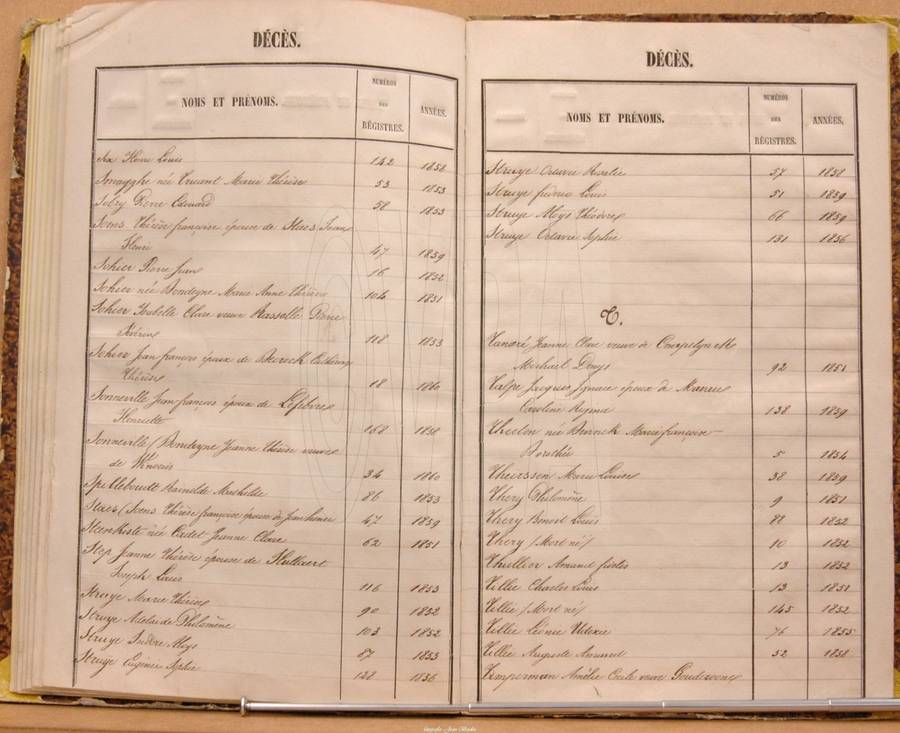 DÉCÈS.
NOMS ET PRÉNOMS.
NUMÉROS
DES
RÉGISTRES.
ANNÉES.
Six Henri Louis 142 1858
Smagghe née Vincant Marie Thérèse 53 1853
Sobry Pierre Edouard 58 1853
Soens Thérèse françoise épouse de Staes Jean
Henri 47 1859
Sohier Pierre Jean 16 1852
Sohier née Bondegne Marie Anne Thérèse 104 1851
Sohier Isabelle Clare veuve Rasselle Pierre
118 1853
Sohier Jean françois époux de Catherine
Thérèse 18 1860
Sonneville Jean françois époux de Lefebvre
Henriette 168 1858
Sonneville / Bondegne Jeanne Thérèse veuve
de 34 1860
Spilleboudt Rainilde Mathilde 86 1853
Staes / Soens Thérèse françoise épouse de Jean henri 47 1859
Steenkiste née Cadet Jeanne Clare 62 1851
Stop Jeanne Thérèse épouse de
Joseph Louis 116 1853
Struye Marie Thérèse 90 1852
Struye Adelaide Philomène 103 1852
Struye Isidore Aloys 87 1853
Struye Eugénie Sophie 128 1856
DÉCÈS.
NOMS ET PRÉNOMS.
NUMÉROS
DES
RÉGISTRES.
ANNÉES,
Struye Octavie Rosalie 57 1858
Struye fréderic Louis 51 1859
Struye Aloys Théodore 66 1859
Struye Octavie Sophie 131 1856
T.
Tandré Jeanne Clare veuve de
Michael Denys 92 1851
Talpe Jacques Ignace époux de
Caroline 138 1859
née Marie françoise
Dorothée 5 1854
Marie Louise 38 1859
Thery Philomène 9 1851
Thery Benoit Louis 88 1852
Thery / Mort né / 10 1852
Thullier Amand fidèle 13 1852
Tillie Charles Louis 13 1851
Tillie / Mort né / 145 1852
Tillie Léonie 76 1855
Tillie Auguste Amand 52 1858
Timperman Amélie Cécile veuve